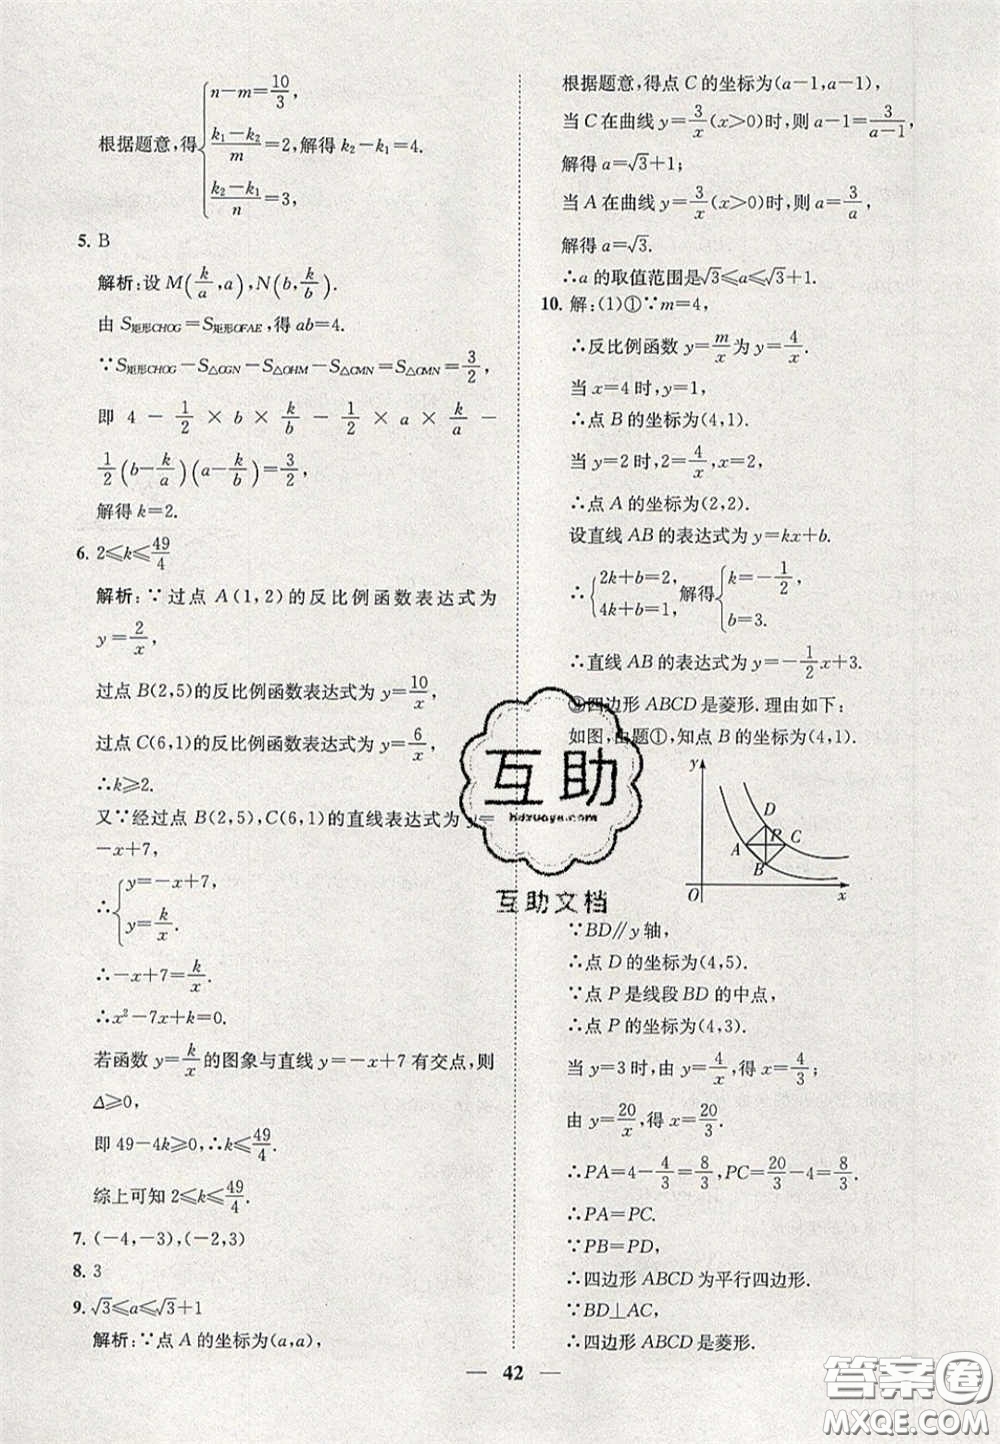 根据题意，得{n－m＝10/3，
(k₁－k₂)/m＝2，解得 k₂－k₁＝4.
(k₂－k₁)/n＝3，
5. B
解析：设 M(k/a，a)，N(b，k/b).
由 S矩形CHOG＝S矩形OFAE，得 ab＝4.
∵S矩形CHOG－S△OGN－S△OHM－S△CMN＝S△OMN＝3/2，
即 4 － 1/2 × b × k/b － 1/2 × a × k/a －
1/2(b－k/a)(a－k/b)＝3/2，
解得 k＝2.
6. 2≤k≤49/4
解析：∵过点 A(1，2)的反比例函数表达式为
y＝2/x，
过点 B(2，5)的反比例函数表达式为 y＝10/x，
过点 C(6，1)的反比例函数表达式为 y＝6/x，
∴k≥2.
又∵经过点 B(2，5)，C(6，1)的直线表达式为 y＝
－x＋7，
∴{y＝－x＋7，
y＝k/x.
∴－x＋7＝k/x.
∴x²－7x＋k＝0.
若函数 y＝k/x 的图象与直线 y＝－x＋7 有交点，则
Δ≥0，
即 49－4k≥0，∴k≤49/4.
综上可知 2≤k≤49/4.
7. (－4，－3)，(－2，3)
8. 3
9. √3≤a≤√3＋1
解析：∵点 A 的坐标为(a，a)，
根据题意，得点 C 的坐标为(a－1，a－1)，
当 C 在曲线 y＝3/x(x＞0)时，则 a－1＝3/(a－1)，
解得 a＝√3＋1；
当 A 在曲线 y＝3/x(x＞0)时，则 a＝3/a，
解得 a＝√3.
∴a 的取值范围是 √3≤a≤√3＋1.
10. 解：(1)①∵m＝4，
∴反比例函数 y＝m/x 为 y＝4/x.
当 x＝4 时，y＝1，
∴点 B 的坐标为(4，1).
当 y＝2 时，2＝4/x，x＝2，
∴点 A 的坐标为(2，2).
设直线 AB 的表达式为 y＝kx＋b.
∴{2k＋b＝2，4k＋b＝1，解得{k＝－1/2，b＝3.
∴直线 AB 的表达式为 y＝－1/2x＋3.
②四边形 ABCD 是菱形.理由如下：
如图，由题①，知点 B 的坐标为(4，1).
y
D
P
A
C
B
O
x
∵BD∥y 轴，
∴点 D 的坐标为(4，5).
∵点 P 是线段 BD 的中点，
∴点 P 的坐标为(4，3).
当 y＝3 时，由 y＝4/x，得 x＝4/3；
由 y＝20/x，得 x＝20/3.
∴PA＝4－4/3＝8/3，PC＝20/3－4＝8/3.
∴PA＝PC.
∵PB＝PD，
∴四边形 ABCD 为平行四边形.
∵BD⊥AC，
∴四边形 ABCD 是菱形.
— 42 —
互助
hdzuoye.com
互助文档
答案圈
MXQE.COM